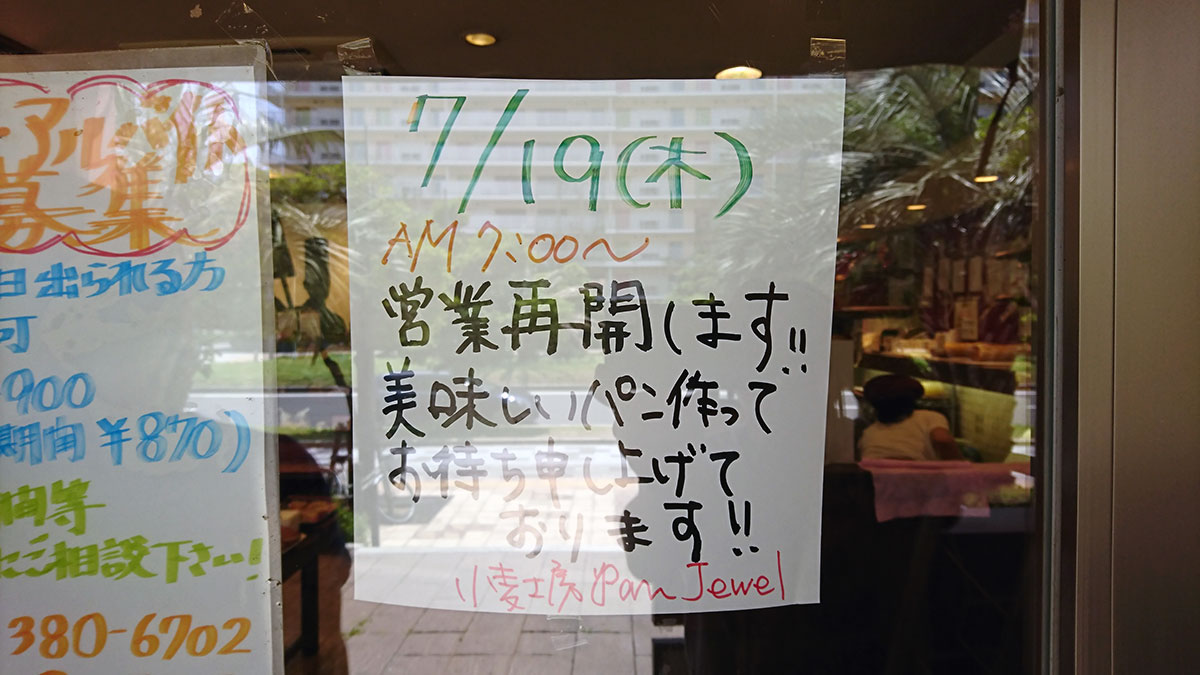 アルバイト
募集
日出られる方
可
-900
期間¥870)
間等
にご相談下さい!
380-6702
7/19(木)
AM7:00〜
営業再開します!!
美味しいパン作って
お待ち申し上げて
おります!!
小麦工房 Pan Jewel